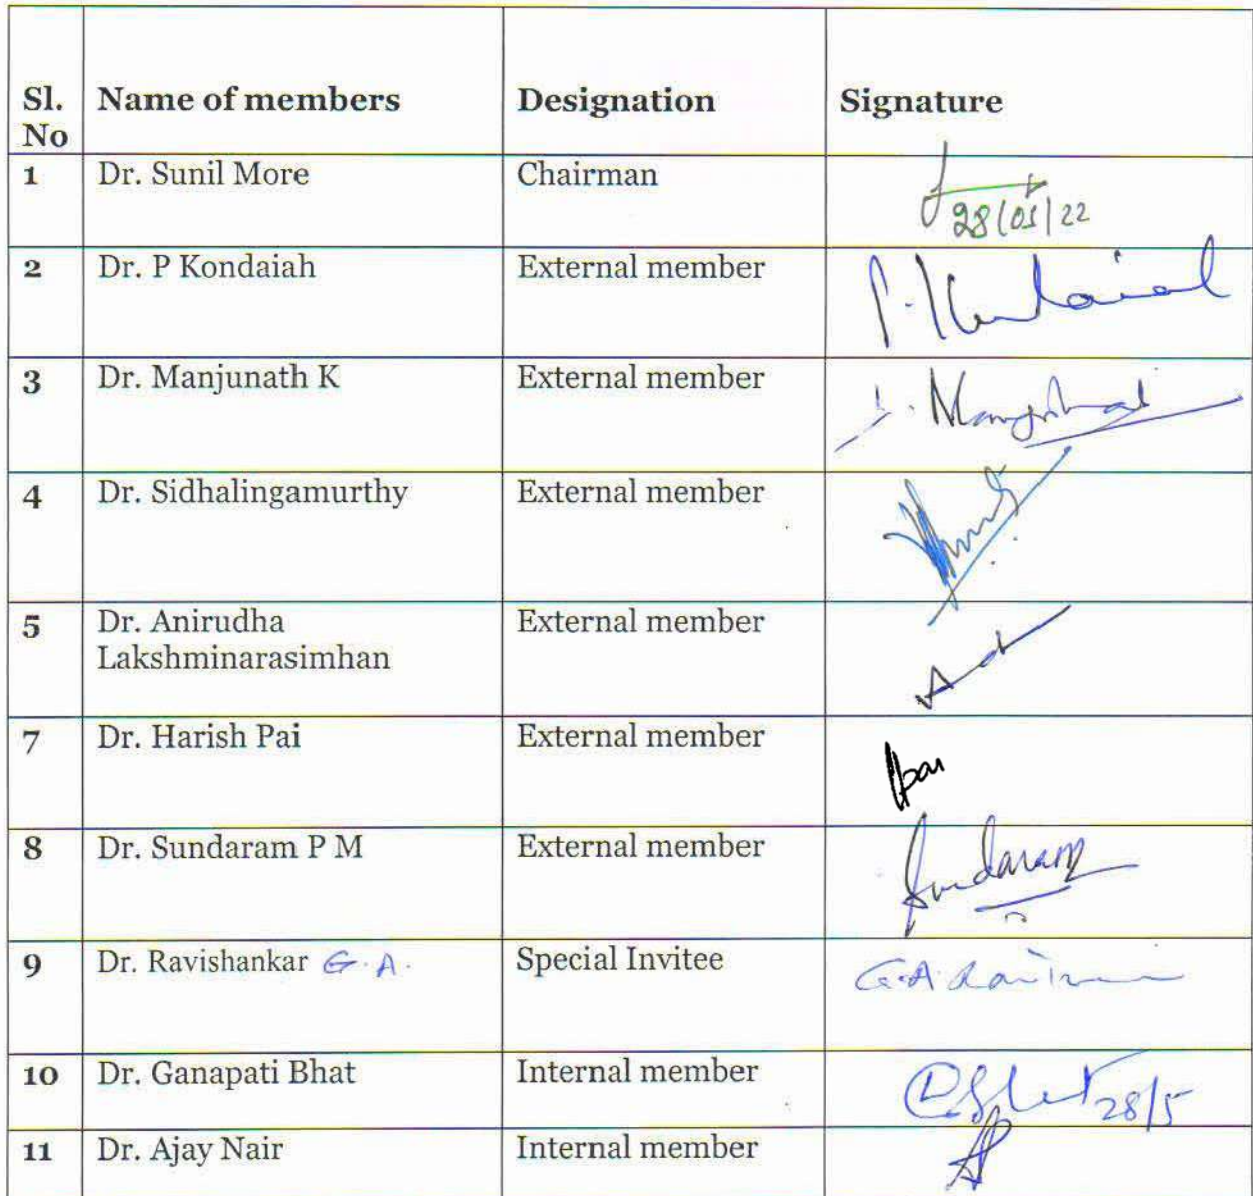 Sl. No Name of members Designation Signature
1 Dr. Sunil More Chairman
28/05/22
2 Dr. P Kondaiah External member P. Kondaiah
3 Dr. Manjunath K External member
4 Dr. Sidhalingamurthy External member
5 Dr. Anirudha External member
Lakshminarasimhan
7 Dr. Harish Pai External member Hpai
8 Dr. Sundaram P M External member Sundaram
9 Dr. Ravishankar G.A. Special Invitee G.A.
10 Dr. Ganapati Bhat Internal member 28/5
11 Dr. Ajay Nair Internal member